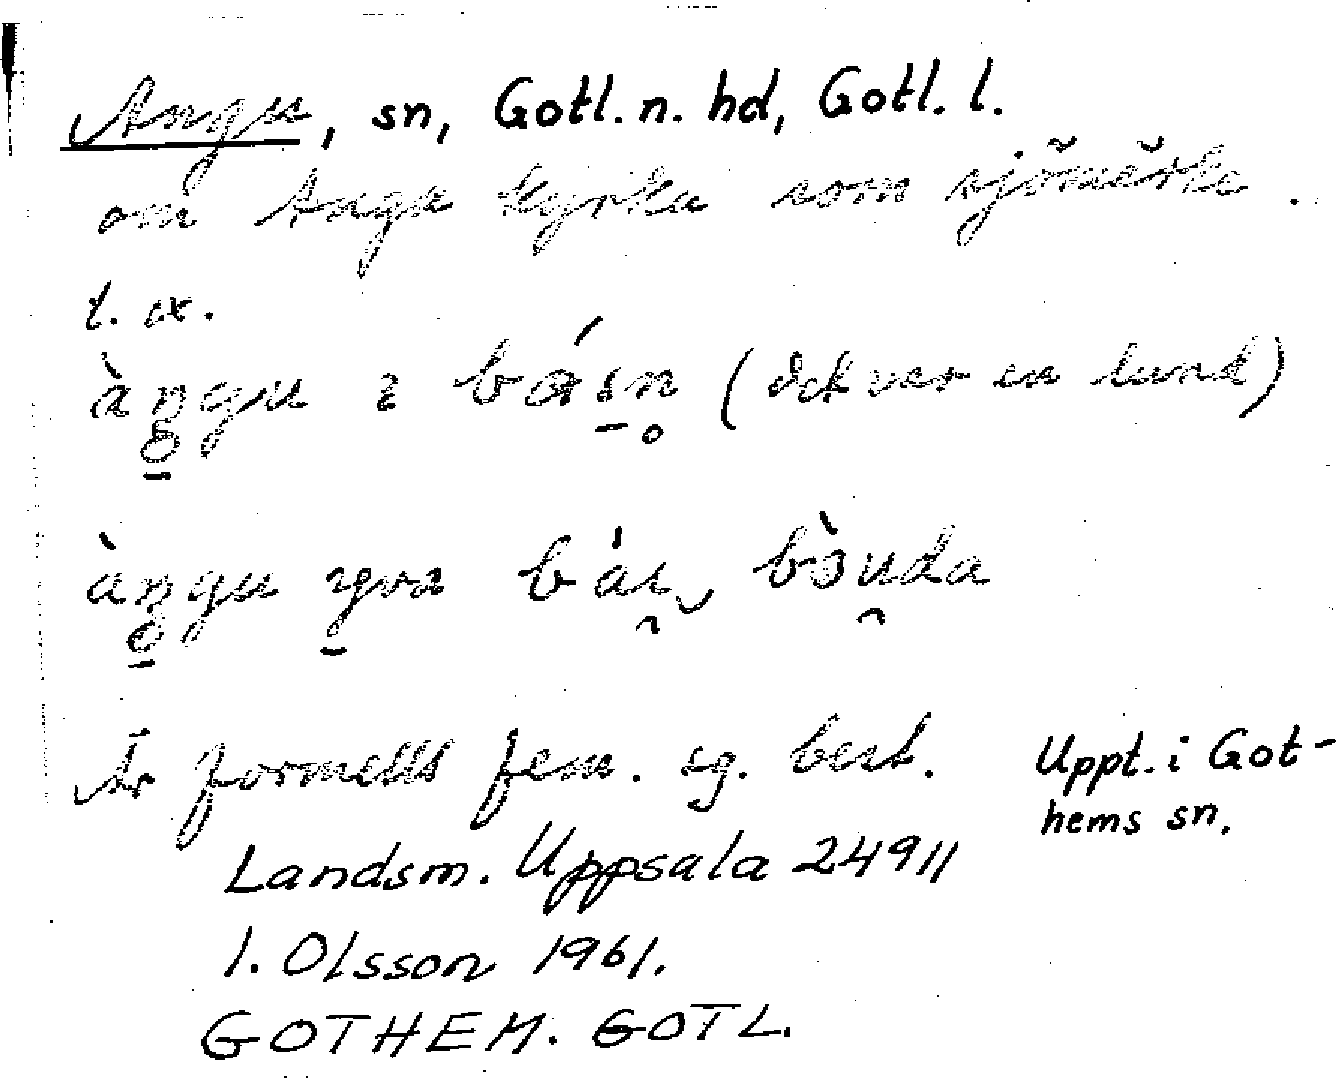 Angu, sn, Gotl. n. hd, Gotl. l.
om Anga kyrka som sjömärke.
t. ex.
àngu i básn (det var en lund)
àngu yva bái, bòuda
Är formellt fem. sg. best.
Uppt. i Got-
hems sn.
Landsm. Uppsala 24911
I. Olsson 1961.
GOTHEM. GOTL.